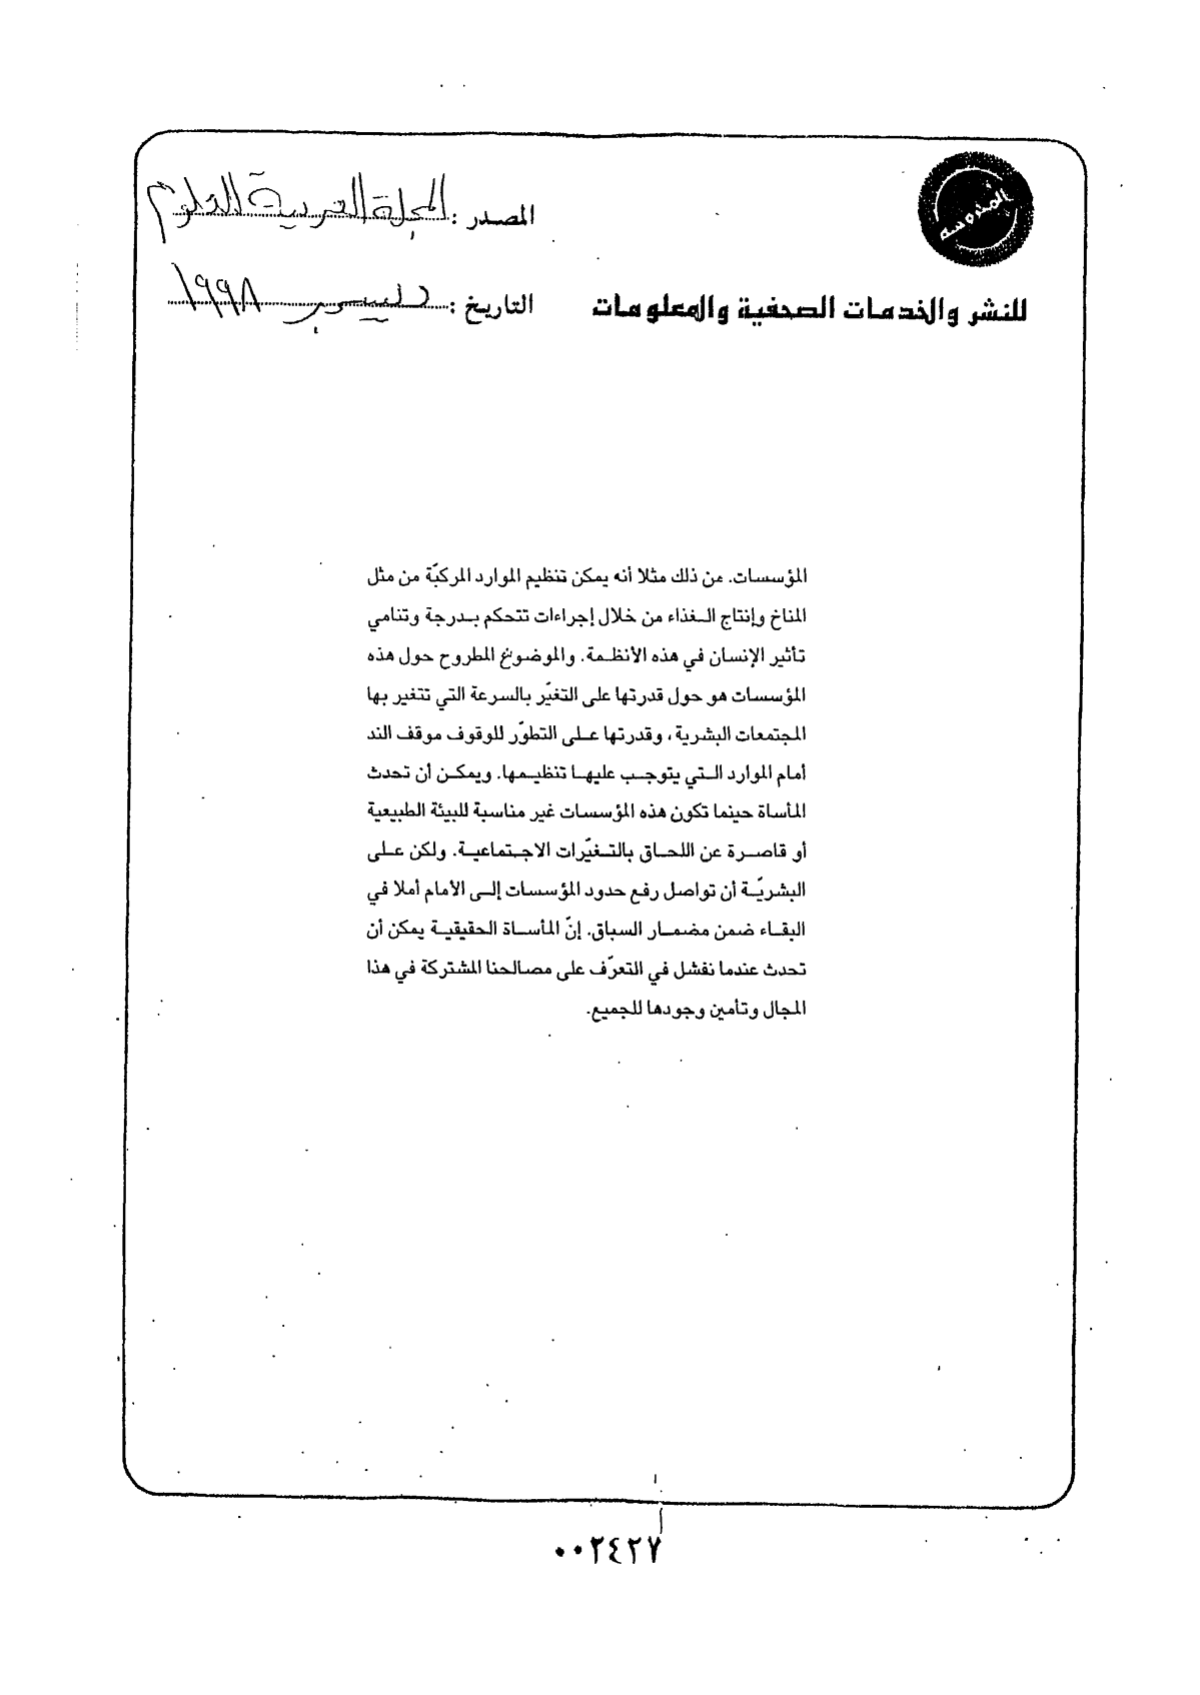 المحروسة
المصدر : المجلة العربية للعلوم
للنشر والخدمات الصحفية والمعلومات
التاريخ : ديسمبر ١٩٩٨
المؤسسات. من ذلك مثلا أنه يمكن تنظيم الموارد المركبّة من مثل
المناخ وإنتاج الغذاء من خلال إجراءات تتحكم بدرجة وتنامي
تأثير الإنسان في هذه الأنظمة. والموضوع المطروح حول هذه
المؤسسات هو حول قدرتها على التغيّر بالسرعة التي تتغير بها
المجتمعات البشرية، وقدرتها على التطوّر للوقوف موقف الند
أمام الموارد التي يتوجب عليها تنظيمها. ويمكن أن تحدث
المأساة حينما تكون هذه المؤسسات غير مناسبة للبيئة الطبيعية
أو قاصرة عن اللحاق بالتغيّرات الاجتماعية. ولكن على
البشريّة أن تواصل رفع حدود المؤسسات إلى الأمام أملا في
البقاء ضمن مضمار السباق. إنّ المأساة الحقيقية يمكن أن
تحدث عندما نفشل في التعرّف على مصالحنا المشتركة في هذا
المجال وتأمين وجودها للجميع.
٠٠٢٤٢٧